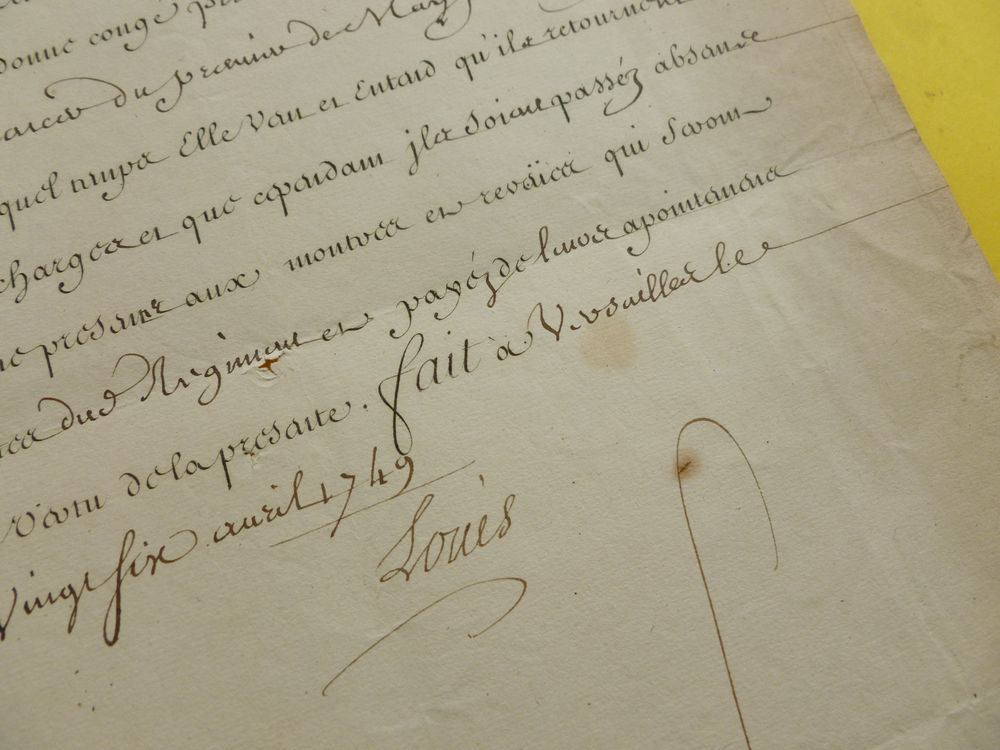 donne congé
du premier de May
quel temps Elle Veut et Entend qu'ils retournent
charges et que cependant jls soient passéz absens
presens aux montres et reveües qui seront
dud Regiment et payéz de leurs apointemens
Vertu de la presente. fait a Versailles le
Vingt six avril 1749
Louis